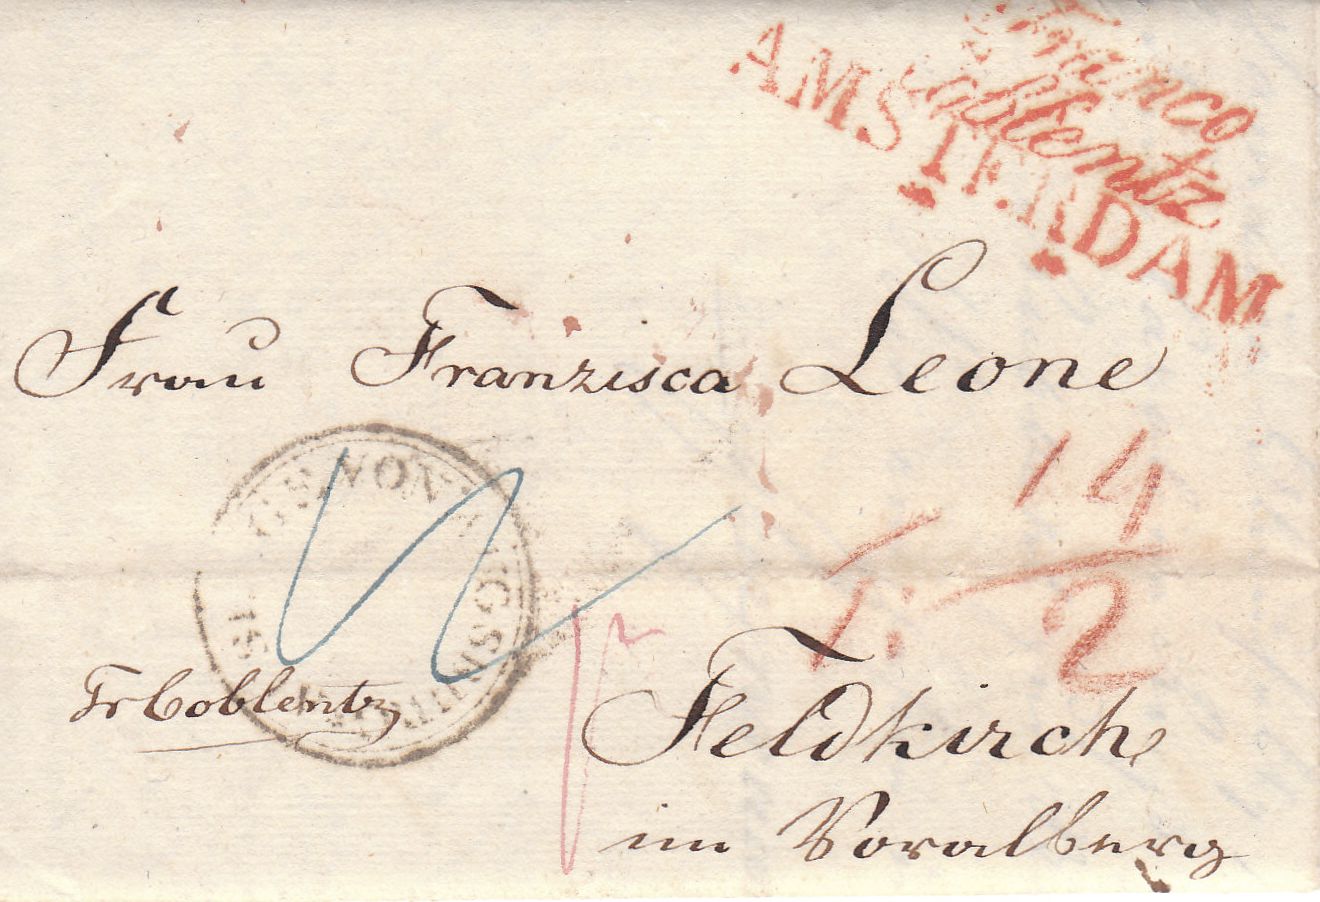 Franco
Coblentz
AMSTERDAM
Frau Franzisca Leone
14
2
Fr Coblentz
Feldkirch
im Voralberg